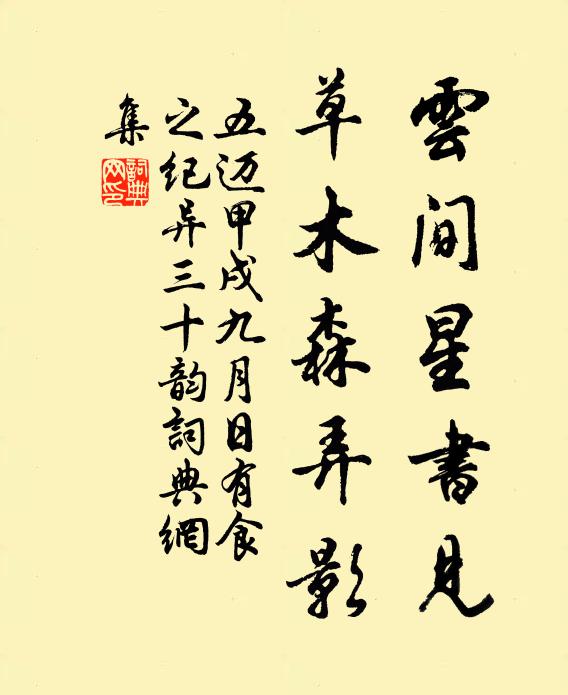 雲间星書見
草木森弄影
五迈甲戌九月日有食
之纪异三十韵詞典網
集
詞典網印